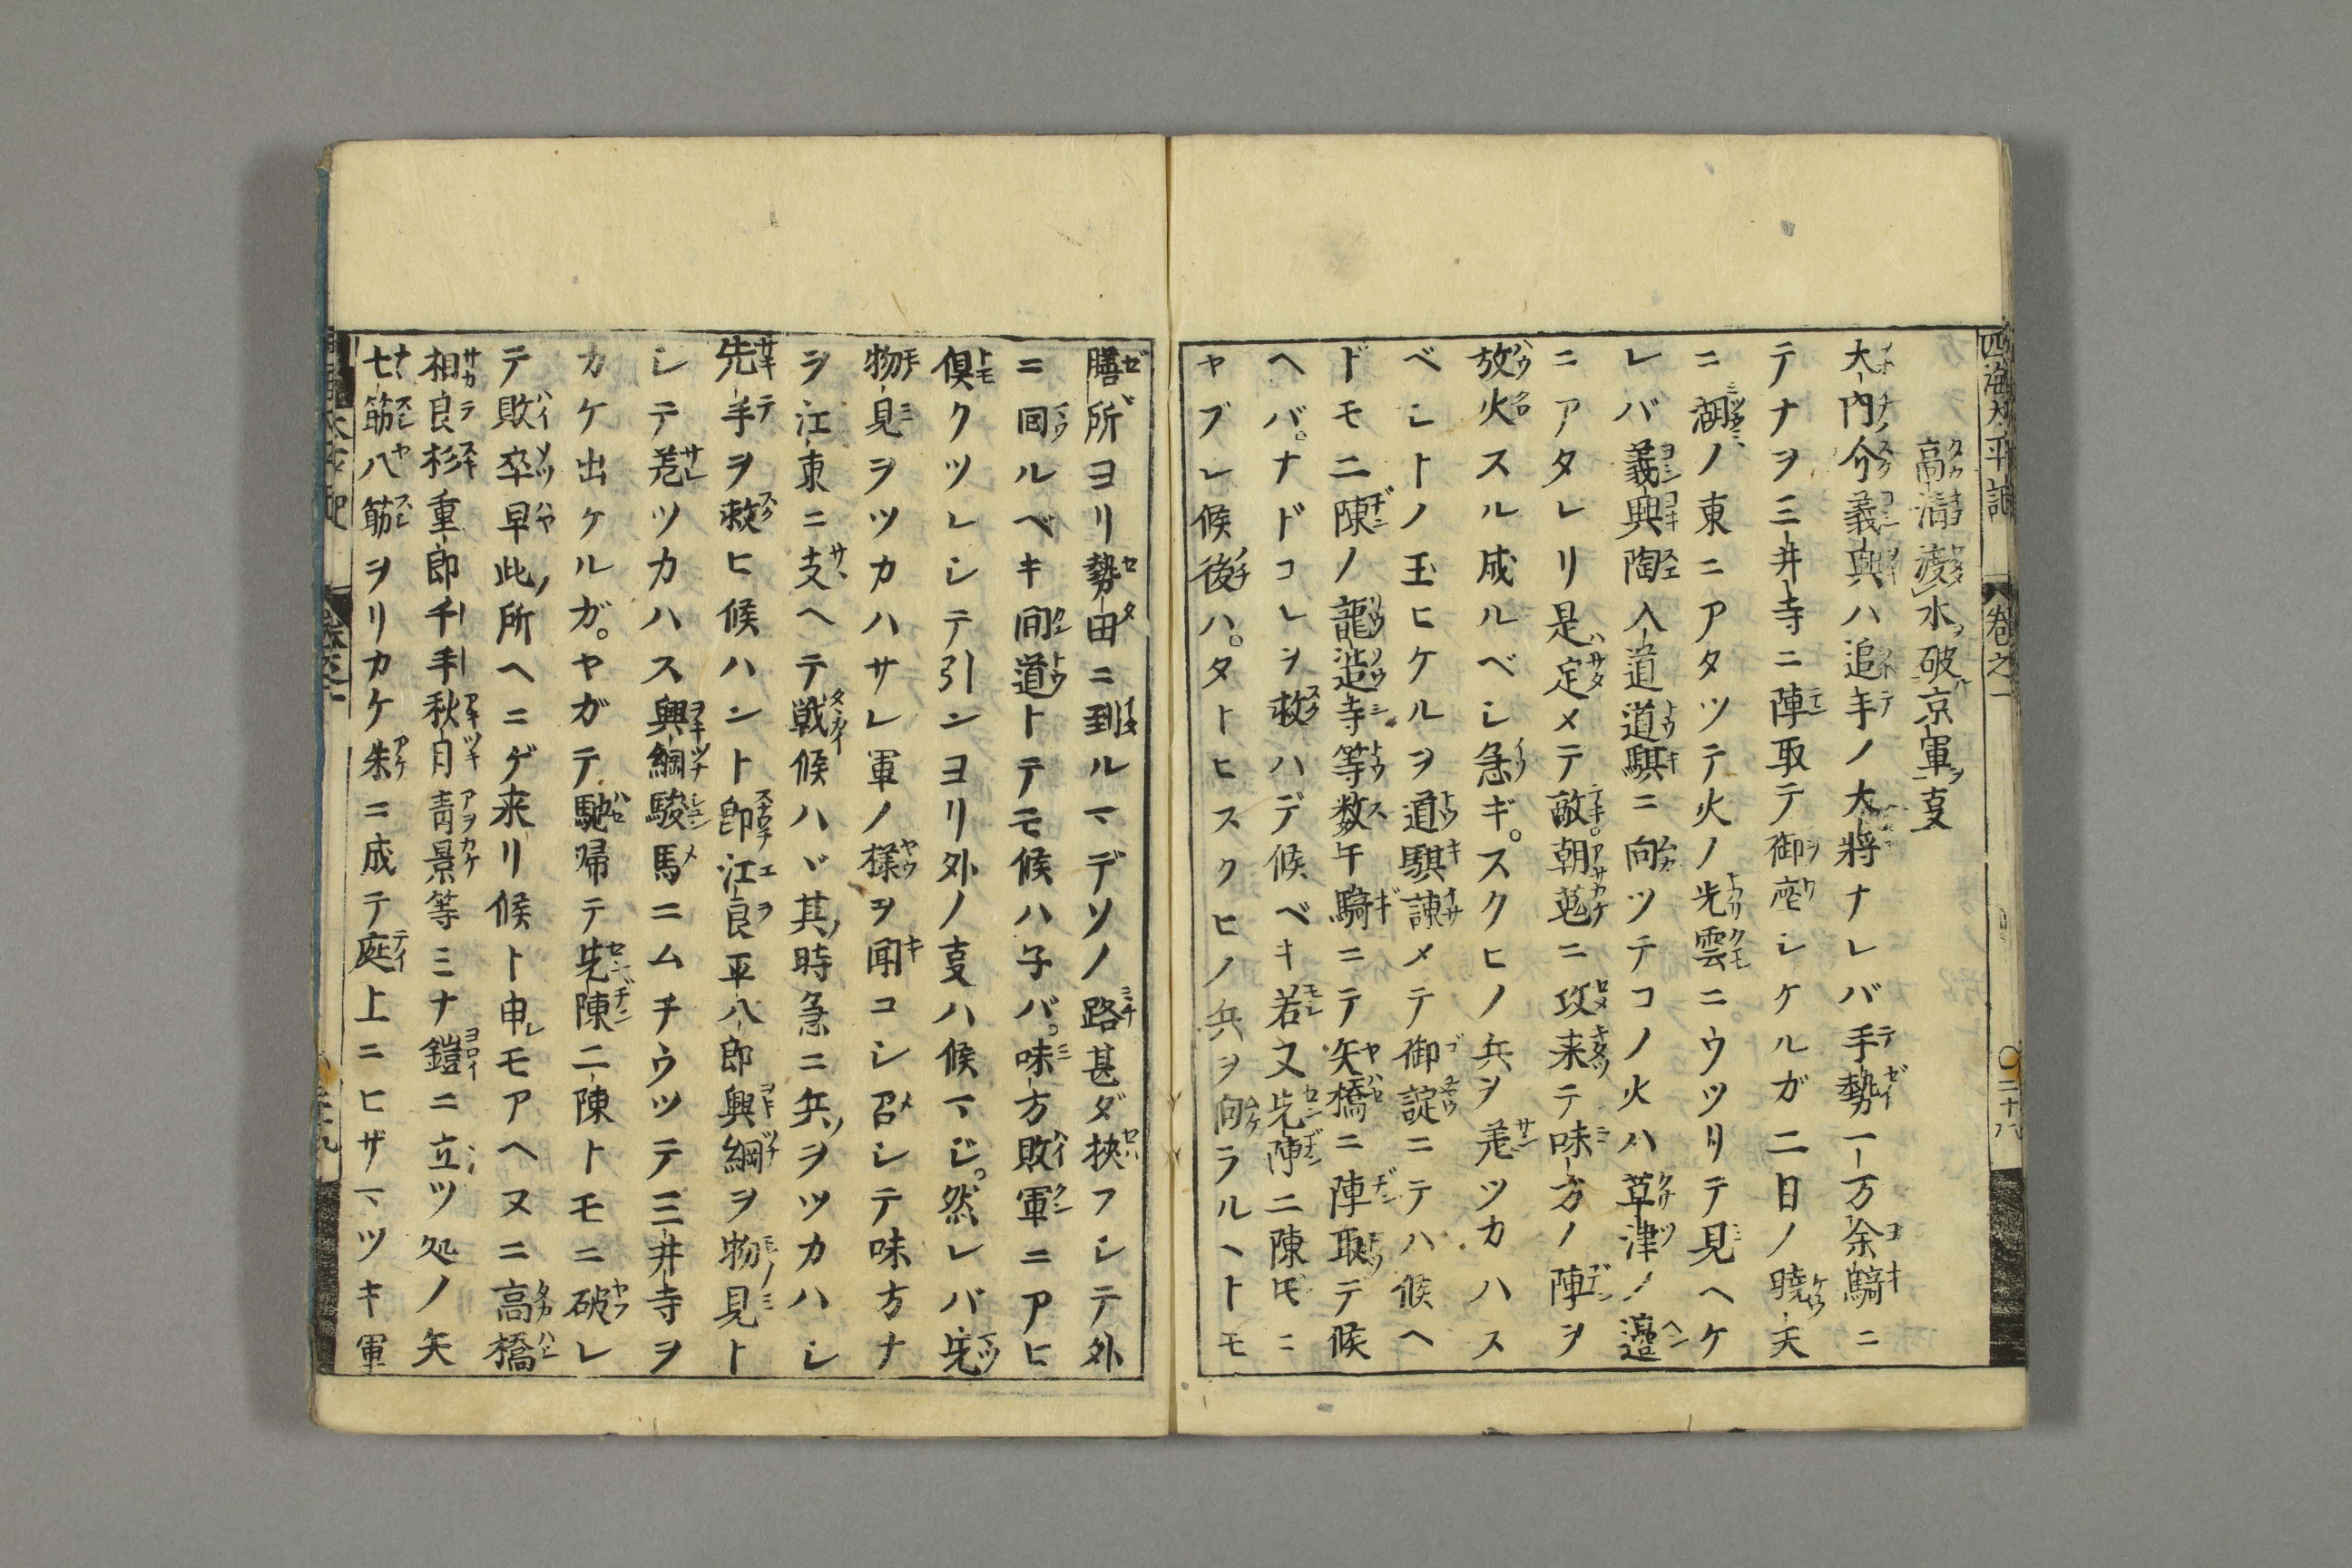 四海太平記　卷之一　〇二十八
高清渡水破京軍ヲ㕝
大内介義興ハ追手ノ大将ナレバ手勢一万余騎ニ
テナヲ三井寺ニ陣取テ御座シケルガ二日ノ暁天
ニ湖ノ東ニアタツテ火ノ光雲ニウツリテ見ヘケ
レバ義興陶入道道騏ニ向ツテコノ火ハ草津ノ邉
ニアタレリ是定メテ敵朝蒐ニ攻来テ味方ノ陣ヲ
放火スル成ルベシ急ギ。スクヒノ兵ヲ差ツカハス
ベシトノ玉ヒケルヲ道騏諌メテ御諚ニテハ候ヘ
ドモ二陳ノ龍造寺等数千騎ニテ矢橋ニ陣取テ候
ヘバ。ナドコレヲ救ハデ候ベキ若又先陣二陳モニ
ヤブレ候後ハ。タトヒスクヒノ兵ヲ向ラルヽトモ
膳所ヨリ勢田ニ到ルマデソノ路甚ダ挾フシテ外
ニ囘ルベキ間道トテモ候ハ子バ。味方敗軍ニアヒ
倶クツレシテ引ンヨリ外ノ㕝ハ候マジ。然レバ先
物見ヲツカハサレ軍ノ様ヲ聞コシ召シテ味方ナ
ヲ江東ニ支ヘテ戦候ハヾ其時急ニ兵ヲツカハシ
先手ヲ救ヒ候ハント即江良平八郎興綱ヲ物見ト
シテ差ツカハス興綱駿馬ニムチウツテ三井寺ヲ
カケ出ケルガ。ヤガテ馳帰テ先陳二陳トモニ破レ
テ敗卒早此所ヘニゲ来リ候ト申シモアヘヌニ高橋
相良杉重郎千手秋月青景等ミナ鎧ニ立ツ処ノ矢
七筋八筋ヲリカケ朱ニ成テ庭上ニヒザマツキ軍